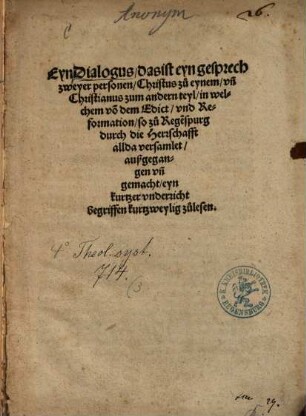 Anonym
26.
Eyn Dialogus / das ist eyn gesprech
zweyer personen / Christus zů eynem / vñ
Christianus zum andern teyl / in wel-
chem võ dem Edict / vnd Re-
formation / so zů Regẽspurg
durch die Herrschafft
allda versamlet /
außgegan-
gen vñ
gemacht / eyn
kurtzer vnderricht
begriffen kurtzweylig zůlesen.
4° Theol. syst.
714.
(3